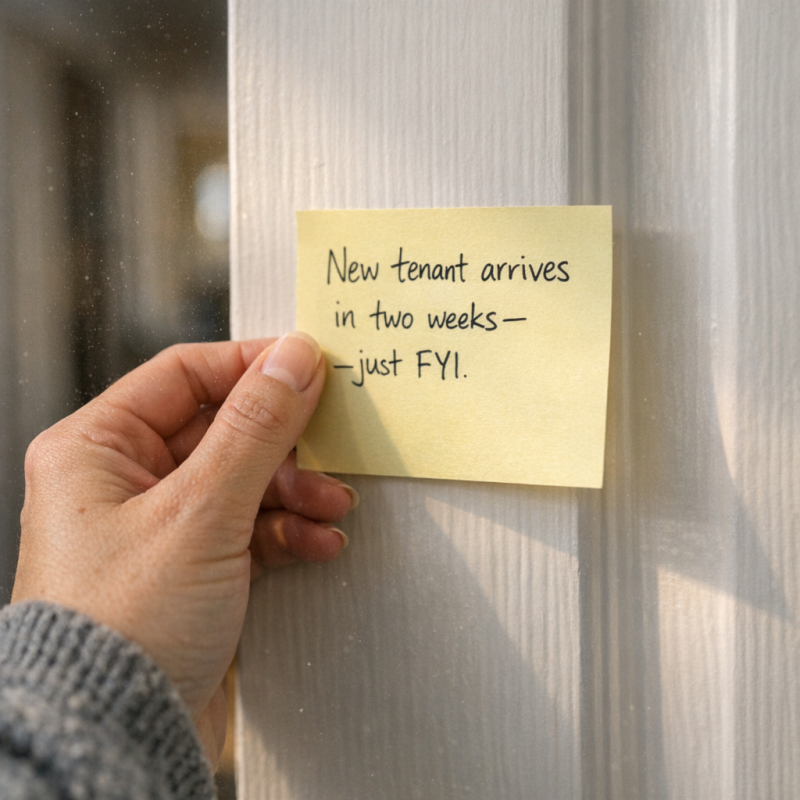 New tenant arrives
in two weeks—
—just FYI.